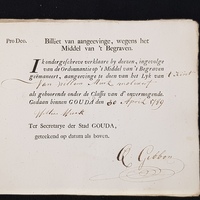 Pro Deo.
Billiet van aangeevinge, wegens het
Middel van 't Begraven.
Ik ondergeschreve verklaare by deezen, ingevolge
van de Ordonnantie op 't Middel van 't Begraven
geëmaneert, aangeevinge te doen van het Lyk van
Jan
als gehoorende onder de Classe van d'onvermogende.
Gedaan binnen GOUDA den April 1789
Ter Secretarye der Stad GOUDA,
geteekend op datum als boven.